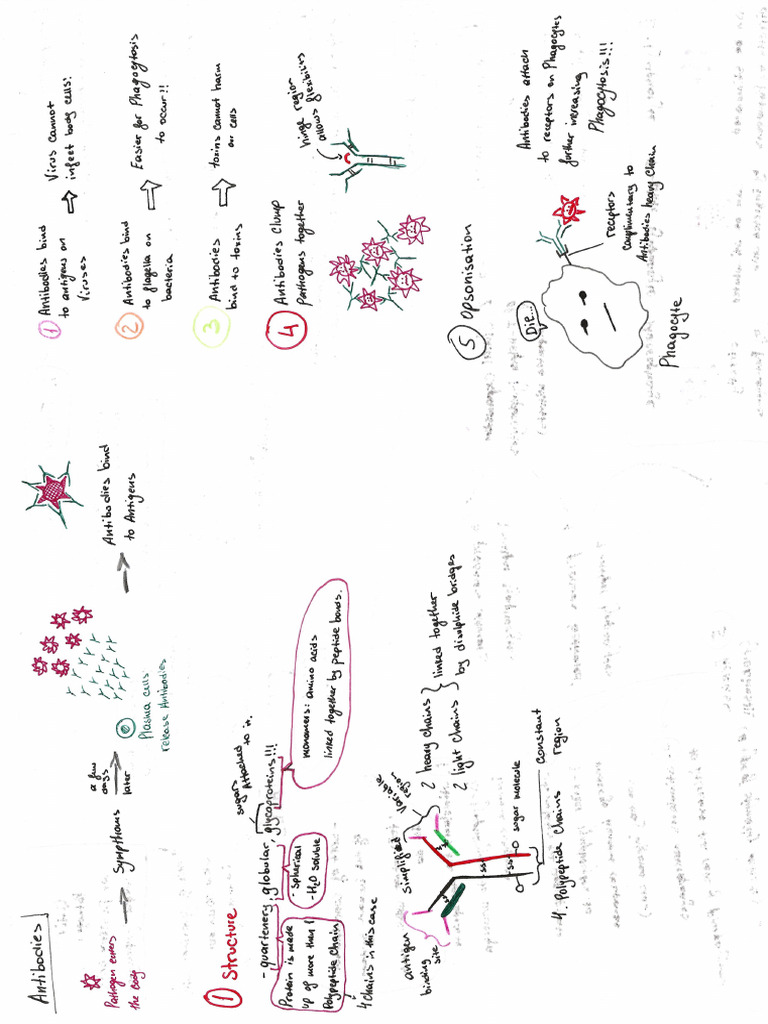 Antibodies
Pathogen enters
the body
Symptoms
a few
days
later
Plasma cells
release Antibodies
Antibodies bind
to Antigens
1 Structure
- quarternery, globular, glycoproteins!!!
Protein is made
up of more than 1
Polypeptide chain
4 chains in this case
· spherical
- H₂O soluble
sugars
Attached to it.
monomers: amino acids
linked together by peptide bonds.
simplified
antigen
binding
site
Variable
region
2 heavy chains
2 light chains
linked together
by disulphide bridges
ss
ss
ss
sugar molecule
constant
region
4 Polypeptide Chains
1 Antibodies bind
to antigens on
Viruses
Virus cannot
infect body cells!
2 Antibodies bind
to flagella on
bacteria
Easier for Phagocytosis
to occur!!
3 Antibodies
bind to toxins
toxins cannot harm
our cells
4 Antibodies Clump
Pathogens together
hinge region
allows flexibility
5 Opsonisation
Antibodies attach
to receptors on Phagocytes
further increasing
Phagocytosis!!!
Die...
receptors
complimentary to
Antibodies heavy Chain
Phagocyte